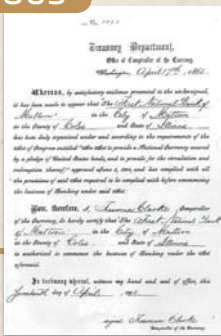 Treasury Department,
Office of Comptroller of the Currency
Washington, April 17th, 186
Whereas, by satisfactory evidence presented to the undersigned,
it has been made to appear that The First National Bank of
Mattoon in the City of Mattoon
in the County of Coles and State of Illinois
has been duly organized under and according to the requirements of the
Act of Congress entitled "An Act to provide a National Currency secured
by a pledge of United States bonds, and to provide for the circulation and
redemption thereof," approved and has complied with all
the provisions of said Act required to be complied with before commencing
the business of Banking under said Act:
Now, therefore, I, Freeman Clarke, Comptroller
of the Currency, do hereby certify that The First National Bank
of Mattoon in the City of Mattoon
in the County of Coles and State of Illinois
is authorized to commence the business of Banking under the Act
aforesaid.
In testimony whereof, witness my hand and seal of office, this
Seventeenth day of April
signed Freeman Clarke
Comptroller of the Currency.